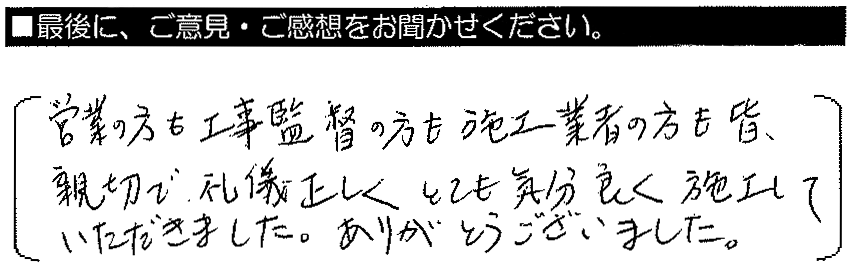 ■最後に、ご意見・ご感想をお聞かせください。
営業の方も工事監督の方も施工業者の方も皆、
親切で、礼儀正しくとても気分良く施工して
いただきました。ありがとうございました。